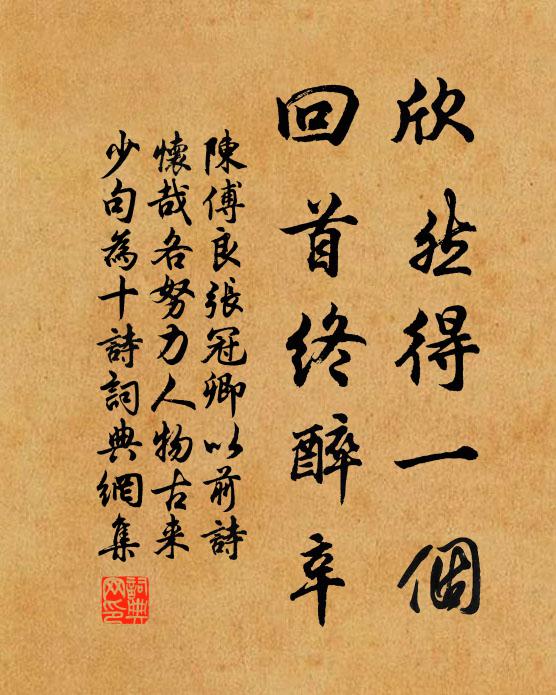 欣然得一個
回首終醉辛
陳傅良張冠卿以前詩
懷哉各努力人物古来
少句為十詩詞典網集
詞典
网印